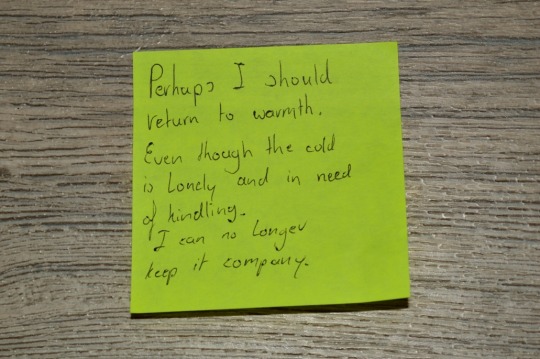 Perhaps I should
return to warmth.
Even though the cold
is Lonely and in need
of kindling.
I can no Longer
keep it company.